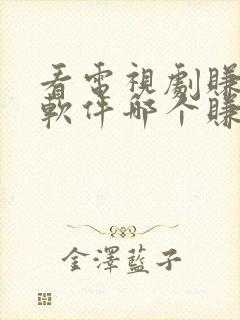 看電視劇賺
軟件哪个賺
金澤藍子